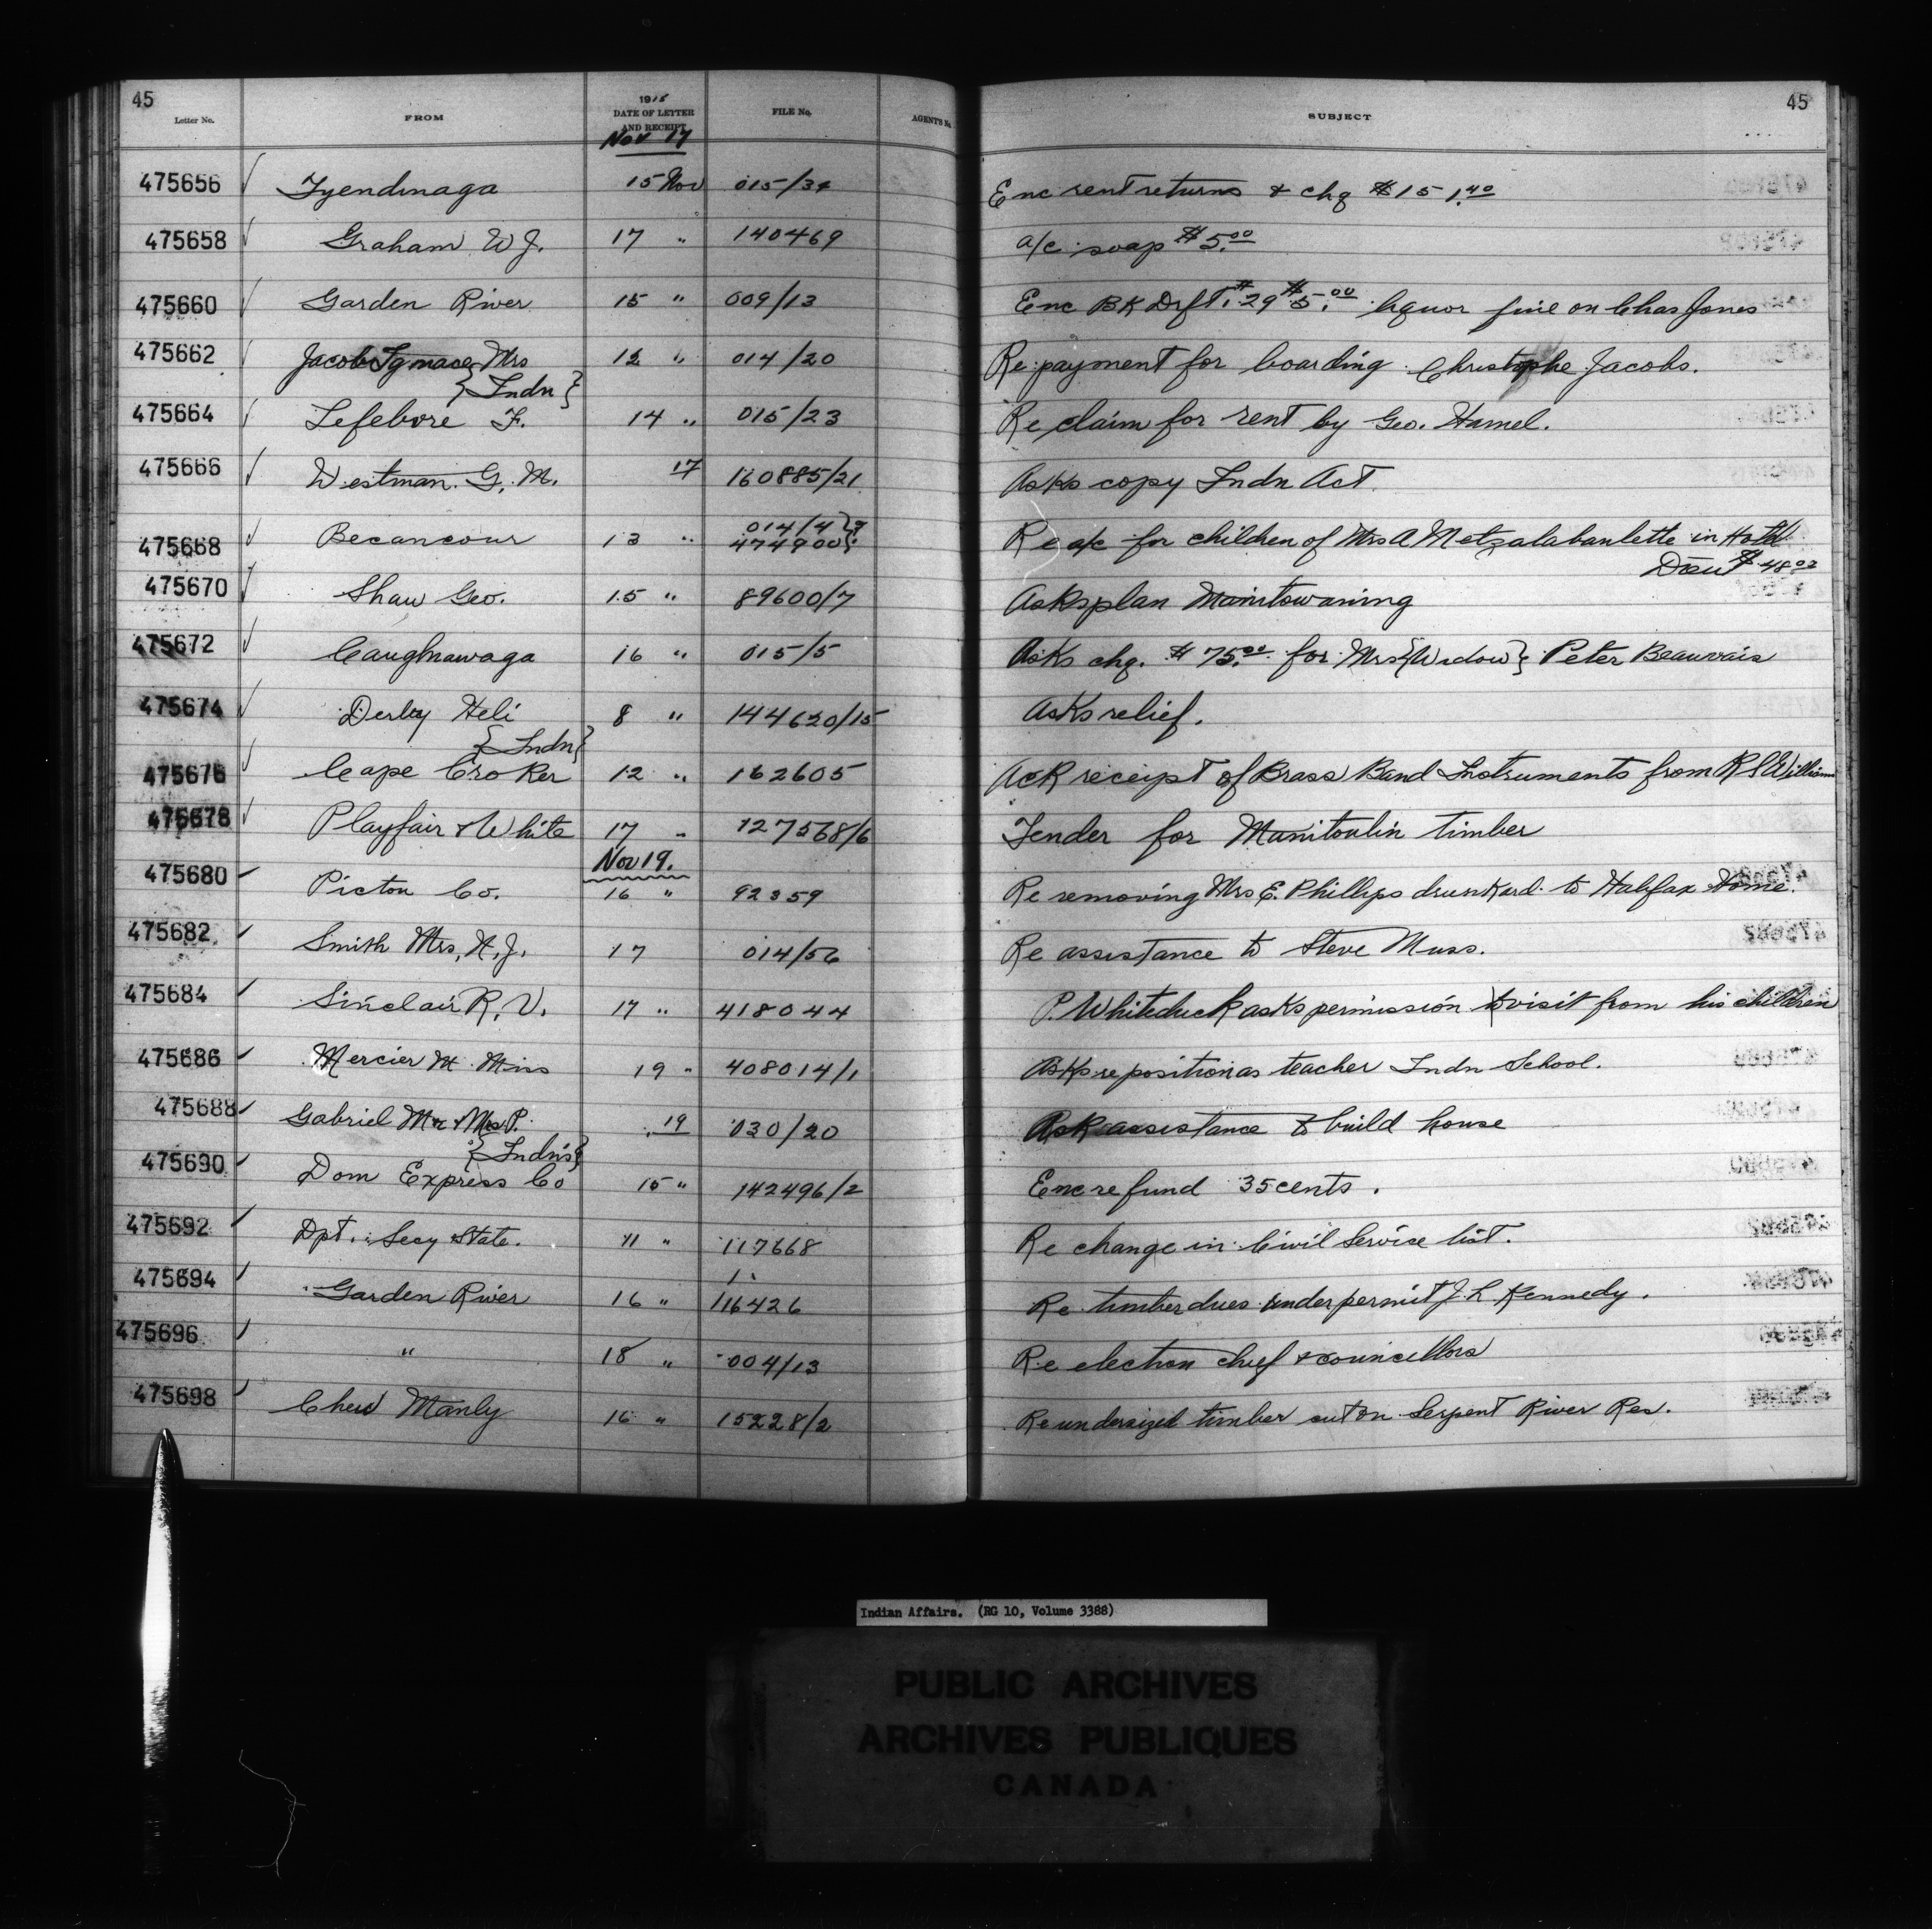 45
Letter No. FROM 1915 DATE OF LETTER AND RECEIPT FILE No. AGENT'S No. SUBJECT 45
Nov 17
475656 Tyendinaga 15 Nov 015/34 Enc rent returns & chq $151.40
475658 Graham W J. 17 " 140469 a/c soap $5.00
475660 Garden River 15 " 009/13 Enc BK Drft. #29 $5.00 liquor fine on Chas Jones
475662 Jacob Ignace Mrs 12 " 014/20 Re payment for boarding Christophe Jacobs.
{Indn}
475664 Lefebvre F. 14 " 015/23 Re claim for rent by Geo. Hamel.
475666 Westman G. M. 17 160885/21 Asks copy Indn Act
475668 Becancour 13 " 014/4 } 474900 } Re a/c for children of Mrs A Metzalabanlette in
$48.02
475670 Shaw Geo. 15 " 89600/7 Asks plan Manitowaning
475672 Caughnawaga 16 " 015/5 Asks chq. $75.00 for Mrs {Widow} Peter Beauvais
475674 Derby Heli 8 " 144620/15 Asks relief.
{Indn}
475676 Cape Croker 12 " 162605 Ack receipt of Brass Band Instruments from R S Williams
475678 Playfair & White 17 " 127568/6 Tender for Manitoulin timber
Nov 19.
475680 Pictou Co. 16 " 92359 Re removing Mrs E. Phillips drunkard to Halifax Home.
475682 Smith Mrs, H, J. 17 014/56 Re assistance to Steve Muss.
475684 Sinclair R. V. 17 " 418044 P. Whiteduck asks permission to visit from his children
475686 Mercier M Miss 19 " 408014/1 Asks re position as teacher Indn School.
475688 Gabriel Mr & Mrs P. 19 030/20 Ask assistance to build house
{Indns}
475690 Dom Express Co 15 " 142496/2 Enc refund 35 cents.
475692 Dpt. Secy State. 11 " 117668 Re change in Civil Service list.
475694 Garden River 16 " 116426 Re timber dues under permit J. L. Kennedy.
475696 " 18 " 004/13 Re election chief & councillors
475698 Chew Manly 16 " 15228/2 Re undersized timber cut on Serpent River Res.
Indian Affairs. (RG 10, Volume 3388)
PUBLIC ARCHIVES
ARCHIVES PUBLIQUES
CANADA